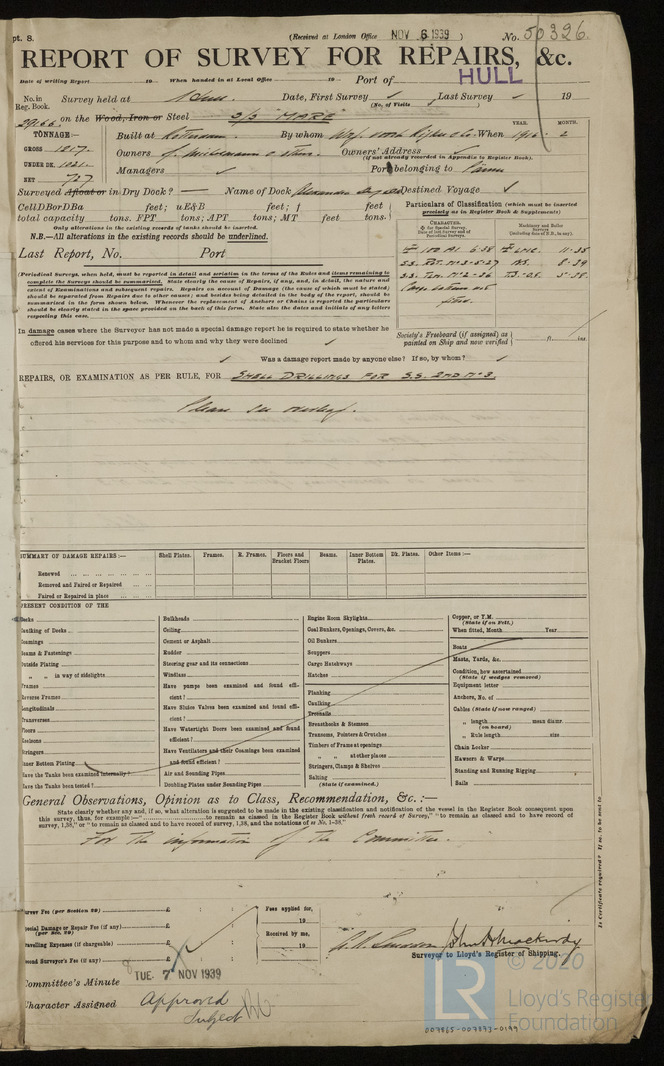 pt. 8.
(Received at London Office NOV 6 1939)
No. 50326.
REPORT OF SURVEY FOR REPAIRS, &c.
Date of writing Report 19 When handed in at Local Office 19 Port of HULL
No. in Reg. Book. Survey held at Date, First Survey Last Survey 19
(No. of Visits )
29166 on the Wood, Iron or Steel S/S "MARE"
TONNAGE:— Built at Rotterdam By whom When YEAR. 1916 MONTH. 2
GROSS 1217. Owners Owners' Address
(if not already recorded in Appendix to Register Book).
UNDER DK. 1021.
NET 727 Managers Port belonging to
Surveyed Afloat or in Dry Dock? Name of Dock Destined Voyage
Cell DB or DBa feet; uE&B feet; f feet
total capacity tons. FPT tons; APT tons; MT feet tons.
Only alterations in the existing records of tanks should be inserted.
N.B.—All alterations in the existing records should be underlined.
Last Report, No. Port
Particulars of Classification (which must be inserted precisely as in Register Book & Supplements)
CHARACTER.
100 A1 6.38 LMC. 11.35
S.S. No. 3-5-27 8-39
S.S. No. 2-36 T.S. 5-38
(Periodical Surveys, when held, must be reported in detail and seriatim in the terms of the Rules and items remaining to complete the Surveys should be summarised. State clearly the Cause of Repairs, if any, and, in detail, the nature and extent of Examinations and subsequent repairs. Repairs on account of Damage (the cause of which must be stated) should be separated from Repairs due to other causes; and besides being detailed in the body of the report, should be summarised in the form shown below. Whenever the replacement of Anchors or Chains is reported the particulars should be clearly stated in the space provided on the back of this form. State also the dates and initials of any letters respecting this case.
In damage cases where the Surveyor has not made a special damage report he is required to state whether he
offered his services for this purpose and to whom and why they were declined
Society's Freeboard (if assigned) as painted on Ship and now verified ft. ins.
Was a damage report made by anyone else? If so, by whom?
REPAIRS, OR EXAMINATION AS PER RULE, FOR SHELL DRILLINGS FOR S.S. 2ND No 3.
Please see overleaf.
SUMMARY OF DAMAGE REPAIRS:— Shell Plates. Frames. R. Frames. Floors and Bracket Floors Beams. Inner Bottom Plates. Dk. Plates. Other Items:—
Renewed
Removed and Faired or Repaired
Faired or Repaired in place
PRESENT CONDITION OF THE
Decks
Caulking of Decks
Coamings
Beams & Fastenings
Outside Plating
" " in way of sidelights
Frames
Reverse Frames
Longitudinals
Transverses
Floors
Keelsons
Stringers
Inner Bottom Plating
Have the Tanks been examined internally?
Have the Tanks been tested?
Bulkheads
Ceiling
Cement or Asphalt
Rudder
Steering gear and its connections
Windlass
Have pumps been examined and found efficient?
Have Sluice Valves been examined and found efficient?
Have Watertight Doors been examined and found efficient?
Have Ventilators and their Coamings been examined and found efficient?
Air and Sounding Pipes
Doubling Plates under Sounding Pipes
Engine Room Skylights
Coal Bunkers, Openings, Covers, &c.
Oil Bunkers
Scuppers
Cargo Hatchways
Hatches
Planking
Caulking
Treenails
Breasthooks & Stemson
Transoms, Pointers & Crutches
Timbers of Frame at openings
" " at other places
Stringers, Clamps & Shelves
Salting
(State if examined.)
Copper, or Y.M.
(State if on Felt.)
When fitted, Month Year
Boats
Masts, Yards, &c.
Condition, how ascertained
(State if wedges removed)
Equipment letter
Anchors, No. of
Cables (State if now ranged)
" length mean diamr.
(on board)
" Rule length size
Chain Locker
Hawsers & Warps
Standing and Running Rigging
Sails
General Observations, Opinion as to Class, Recommendation, &c.:—
State clearly whether any, and if so, what alteration is suggested to be made in the existing classification and notification of the vessel in the Register Book consequent upon
this survey, thus, for example:—" to remain as classed in the Register Book without fresh record of Survey," "to remain as classed and to have record of
survey, 1,38," or "to remain as classed and to have record of survey, 1,38, and the notations of ss No, 1-38."
For the information of the Committee.
Is Certificate required? If so, to be sent to
Survey Fee (per Section 29) £ : : Fees applied for,
Special Damage or Repair Fee (if any) £ : : 19
(per Sec. 29)
Travelling Expenses (if chargeable) £ : : Received by me,
Second Surveyor's Fee (if any) £ : : 19
Surveyor to Lloyd's Register of Shipping.
Committee's Minute TUE. 7 NOV 1939
Character Assigned Approved
Subject
LR
© 2020
Lloyd's Register
Foundation
007865-007873-0197